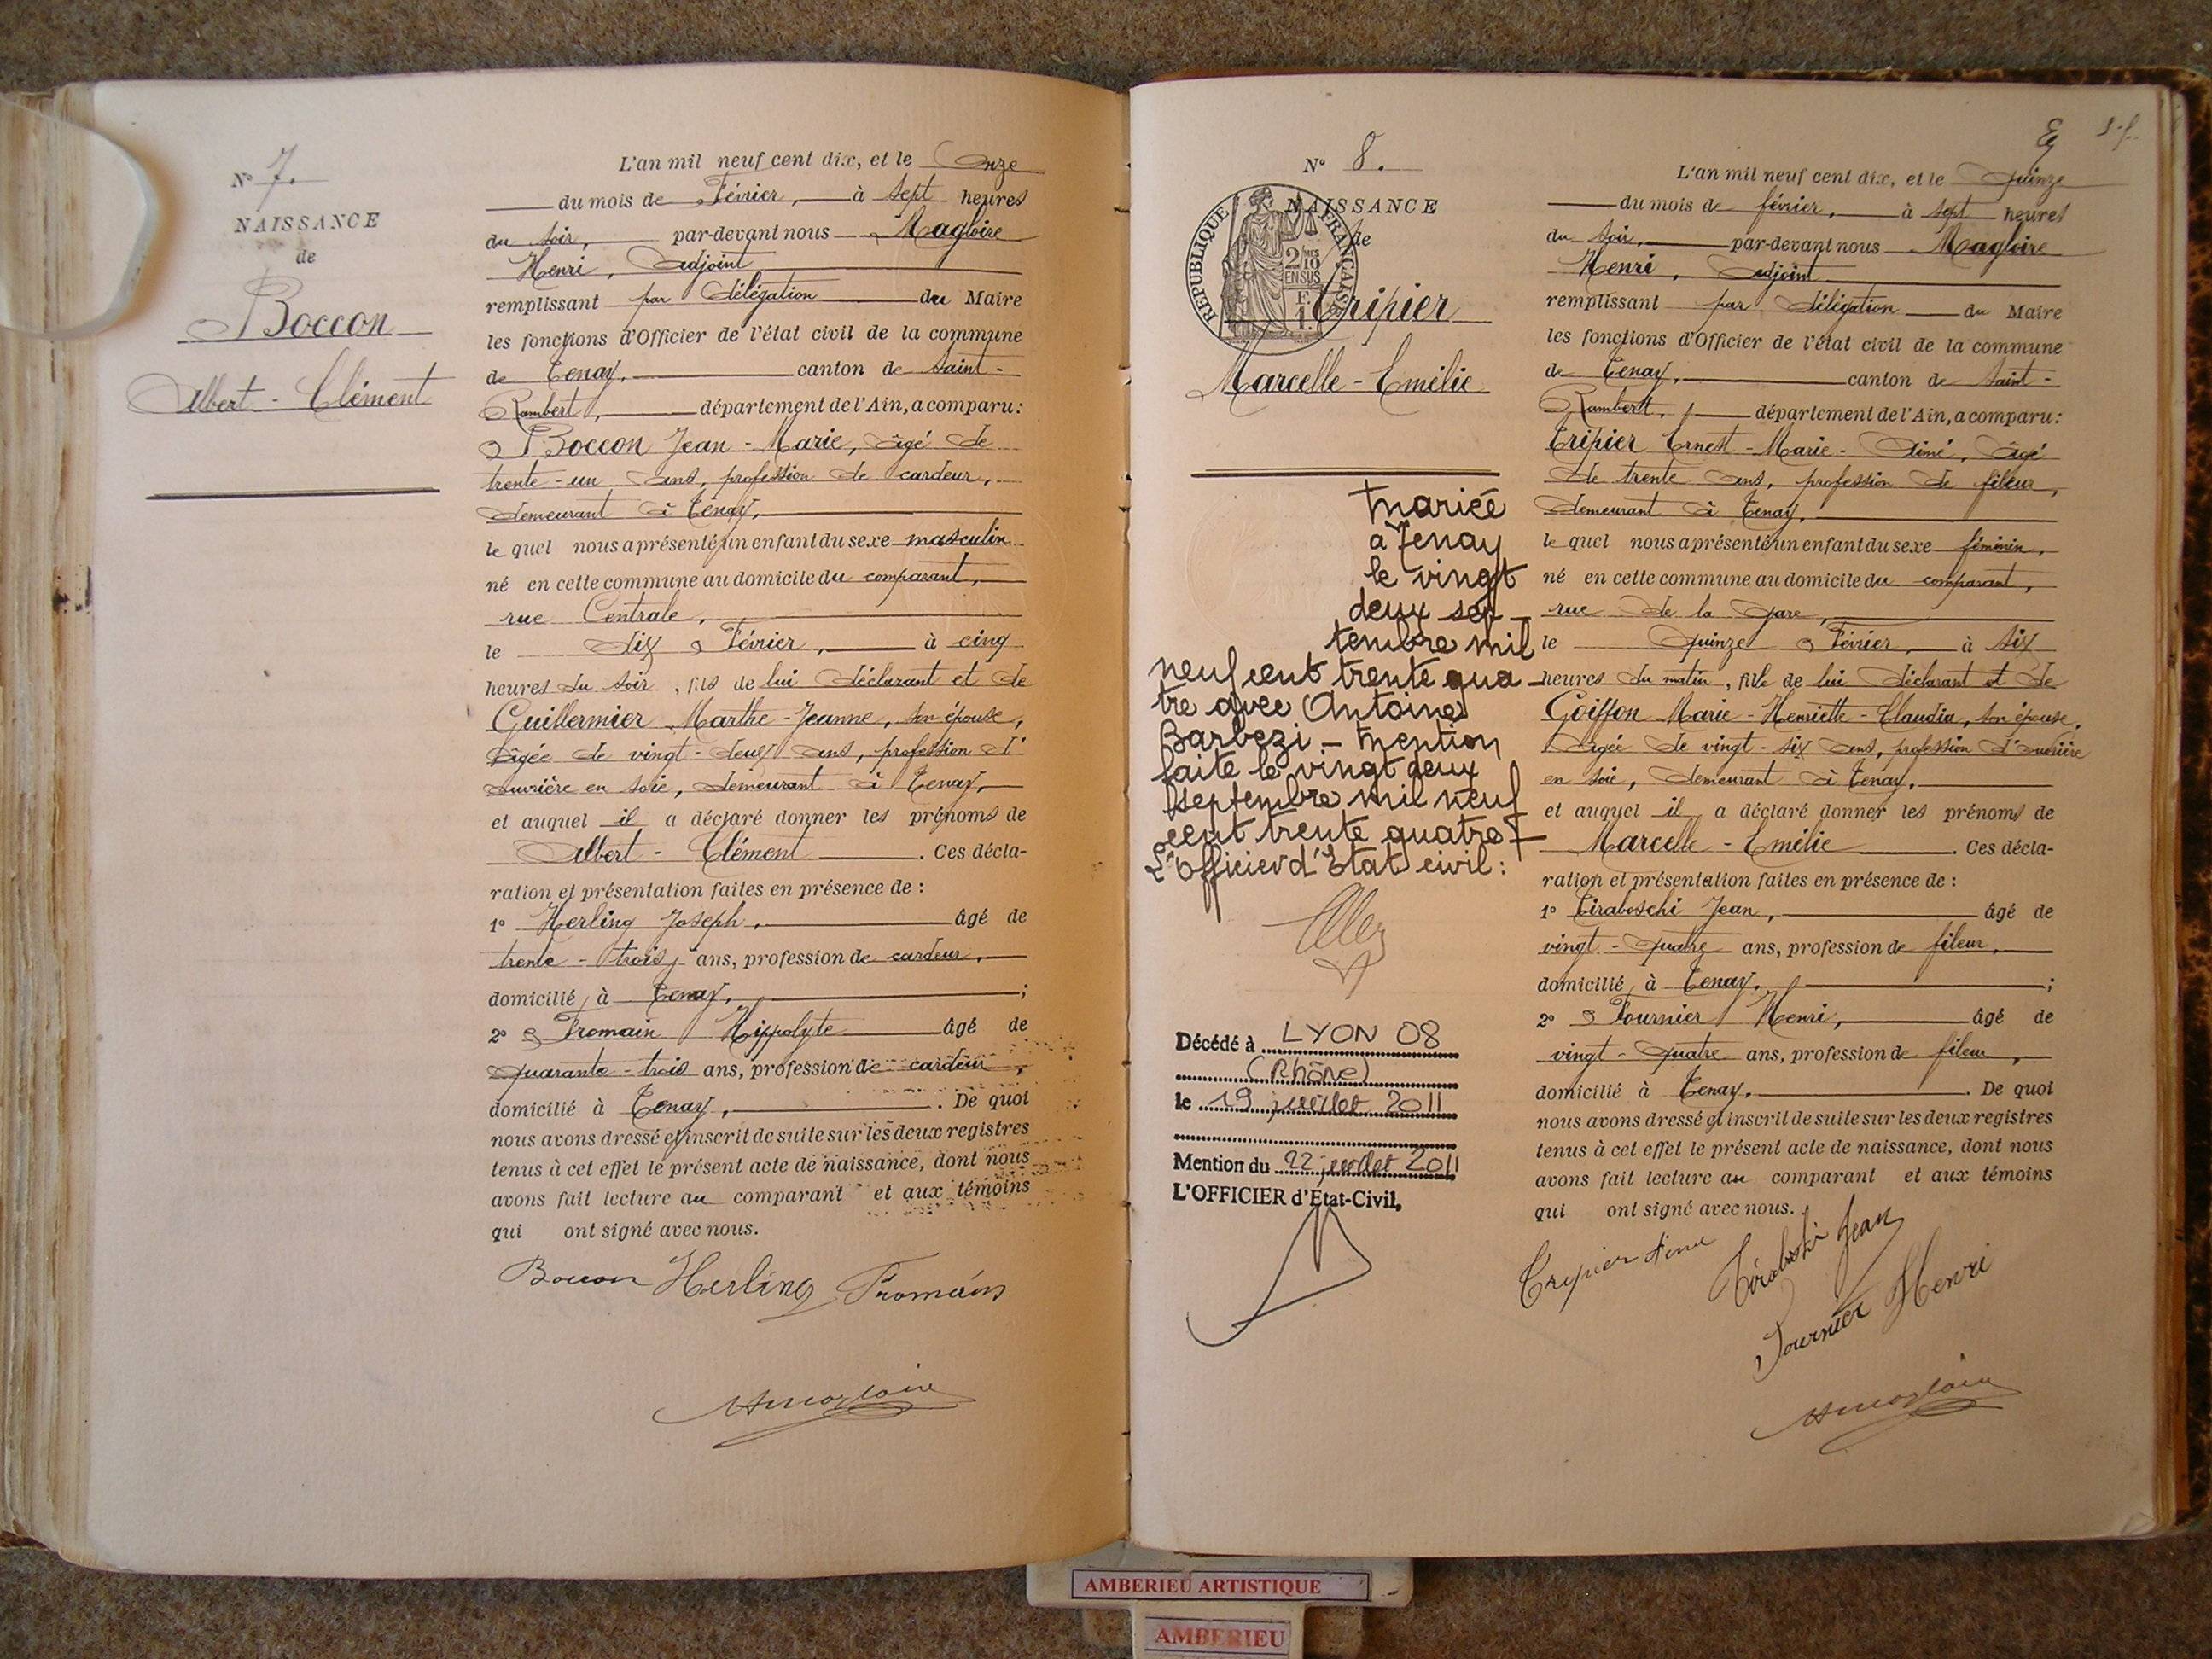 N° 7.
NAISSANCE
de
Boccon
Albert - Clément
L'an mil neuf cent dix, et le Onze
du mois de Février, à sept heures
du soir, par-devant nous Magloire
Henri, Adjoint
remplissant par délégation du Maire
les fonctions d'Officier de l'état civil de la commune
de Tenay, canton de Saint-
Rambert, département de l'Ain, a comparu:
Boccon Jean - Marie, âgé de
trente - un ans, profession de cardeur,
demeurant à Tenay,
le quel nous a présenté un enfant du sexe masculin
né en cette commune au domicile du comparant,
rue Centrale,
le dix Février, à cinq
heures du soir, fils de lui déclarant et de
Guillermier Marthe - Jeanne, son épouse,
âgée de vingt - deux ans, profession d'
ouvrière en soie, demeurant à Tenay,
et auquel il a déclaré donner les prénoms de
Albert - Clément. Ces décla-
ration et présentation faites en présence de :
1° Herling Joseph, âgé de
trente - trois ans, profession de cardeur,
domicilié à Tenay, ;
2° Fromain Hippolyte âgé de
quarante - trois ans, profession de cardeur,
domicilié à Tenay, . De quoi
nous avons dressé et inscrit de suite sur les deux registres
tenus à cet effet le présent acte de naissance, dont nous
avons fait lecture au comparant et aux témoins
qui ont signé avec nous.
Boccon Herling Fromain
HMagloire
N° 8.
NAISSANCE
de
REPUBLIQUE FRANÇAISE
2/10 EN SUS
F. 1.
Tripier
Marcelle - Emélie
Mariée
à Tenay
le vingt
deux sep-
tembre mil
neuf cent trente qua-
tre avec Antoine
Barbezi. - Mention
faite le vingt deux
septembre mil neuf
cent trente quatre
L'Officier d'Etat civil :
Décédé à LYON 08
(Rhône)
le 19 juillet 2011
Mention du 22 juillet 2011
L'OFFICIER d'Etat-Civil,
L'an mil neuf cent dix, et le Quinze
du mois de février, à sept heures
du soir, par-devant nous Magloire
Henri, Adjoint
remplissant par délégation du Maire
les fonctions d'Officier de l'état civil de la commune
de Tenay, canton de Saint-
Rambert, département de l'Ain, a comparu:
Tripier Ernest - Marie - Aimé, âgé
de trente ans, profession de fileur,
demeurant à Tenay,
le quel nous a présenté un enfant du sexe féminin,
né en cette commune au domicile du comparant,
rue de la Gare,
le Quinze Février, à six
heures du matin, fille de lui déclarant et de
Goiffon Marie - Henriette - Claudia, son épouse,
âgée de vingt - six ans, profession d'ouvrière
en soie, demeurant à Tenay,
et auquel il a déclaré donner les prénoms de
Marcelle - Emélie. Ces décla-
ration et présentation faites en présence de :
1° Tiraboschi Jean, âgé de
vingt - quatre ans, profession de fileur,
domicilié à Tenay, ;
2° Fournier Henri, âgé de
vingt - quatre ans, profession de fileur,
domicilié à Tenay, . De quoi
nous avons dressé et inscrit de suite sur les deux registres
tenus à cet effet le présent acte de naissance, dont nous
avons fait lecture au comparant et aux témoins
qui ont signé avec nous.
Tripier Aimé Tiraboschi Jean
Fournier Henri
HMagloire
AMBERIEU ARTISTIQUE
AMBERIEU